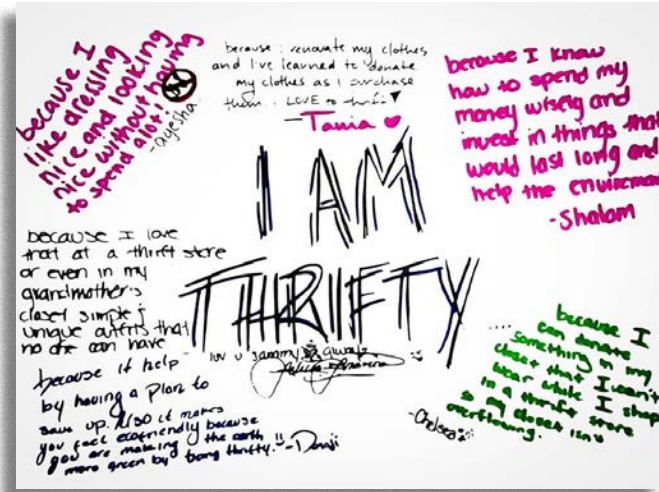 because I
like dressing
nice and looking
nice without having
to spend alot!
-ayesha
because i renovate my clothes
and I've learned to donate
my clothes as I purchase
them. I LOVE to thrift
-Tania
because I know
how to spend my
money wisely and
invest in things that
would last long and
help the enviremen
-Shalom
I AM
THRIFTY
....
because I love
that at a thrift store
or even in my
grandmother's
closet simple &
unique outfits that
no one can have
- luv u grammy
because it help
by having a Plan to
save up. Also it makes
you feel ecofriendly because
you are making the earth
more green by being thrifty."
because I
can donate
something in my
closet that I won't
wear while I shop
in a thrift store
so my closet isn't
overflowing.
-Chelsea